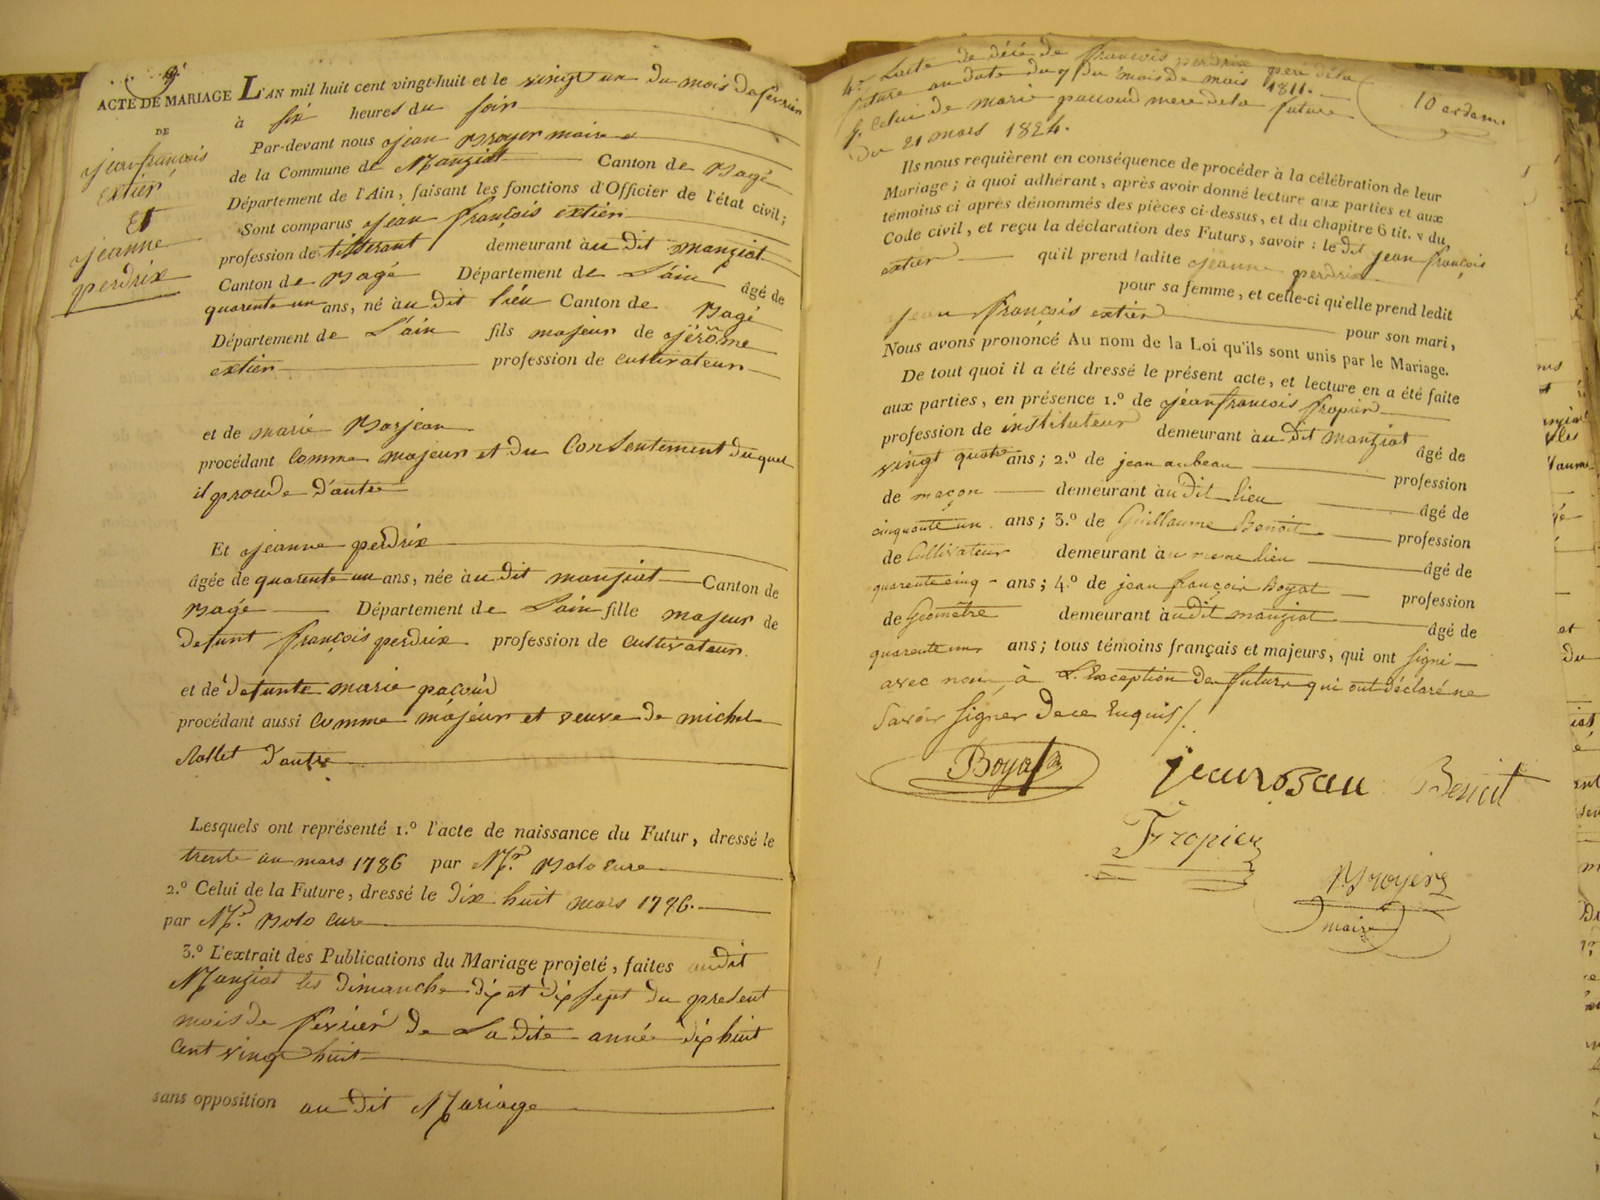 ACTE DE MARIAGE
DE
jean françois
extier
Et
jeanne
perdrix
L'AN mil huit cent vingt-huit et le vingt un du mois de fevrier
à six heures du soir
Par-devant nous jean Broyer maire
de la Commune de Manziat Canton de Bagé
Département de l'Ain, faisant les fonctions d'Officier de l'état civil;
Sont comparus jean françois extier
profession de tisserant demeurant àu dit manziat
Canton de Bagé Département de L'ain âgé de
quarente un ans, né àu dit lieu Canton de Bagé
Département de L'ain fils majeur de jérôme
extier profession de cultivateur
et de marie Borjean
procédant comme majeur et du Consentement duquel
il d'autre
Et jeanne perdrix
âgée de quarente un ans, née àu dit manziat Canton de
Bagé Département de L'ain fille majeur de
defunt françois perdrix profession de cultivateur
et de defunte marie pacoud
procédant aussi comme májéur et veuve de michel
d'autre
Lesquels ont représenté 1.º l'acte de naissance du Futur, dressé le
trente un mars 1786 par Mr. Bolo cure
2.º Celui de la Future, dressé le dix huit mars 1786.
par Mr. Bolo cure
3.º L'extrait des Publications du Mariage projeté, faites audit
Manziat les dimanche dix et dix sept du present
mois de fevrier de La dite année dix huit
cent vingt huit
sans opposition au dit Mariage
4.º Lacte de décé de françois perdrix pere de la
future au date du 7 du mois de mars 1811.
5. celui de marie pacoud mere de la future
du 21 mars 1824.
Ils nous requièrent en conséquence de procéder à la célébration de leur
Mariage; à quoi adhérant, après avoir donné lecture aux parties et aux
témoins ci après dénommés des pièces ci-dessus, et du chapitre 6 tit. v du
Code civil, et reçu la déclaration des Futurs, savoir : le dit jean françois
extier qu'il prend ladite jeanne perdrix
pour sa femme, et celle-ci qu'elle prend ledit
jean françois extier pour son mari,
Nous avons prononcé Au nom de la Loi qu'ils sont unis par le Mariage.
De tout quoi il a été dressé le présent acte, et lecture en a été faite
aux parties, en présence 1.º de jean francois fropier
profession de instituteur demeurant àu dit manziat âgé de
vingt quatre ans; 2.º de jean aubeau profession
de maçon demeurant àu dit lieu âgé de
cinquante un ans; 3.º de Guillaume Benoit profession
de Cultivateur demeurant àu meme lieu âgé de
quarente cinq ans; 4.º de jean françois Boyat profession
de Geomètre demeurant àu dit manziat âgé de
quarente un ans; tous témoins français et majeurs, qui ont signé
avec nous à L'Exception des futurs qui ont déclaré ne
savoir signer de ce Enquis
Boyat Benoit
Fropier
Broyer
maire